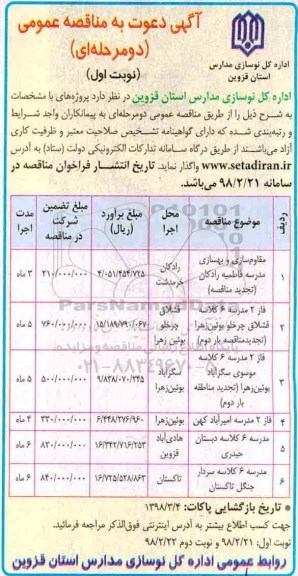 آگهی دعوت به مناقصه عمومی
(دومرحله‌ای)
(نوبت اول)
اداره کل نوسازی مدارس
استان قزوین
اداره کل نوسازی مدارس استان قزوین در نظر دارد پروژه‌های با مشخصات
به شرح ذیل را از طریق مناقصه عمومی دومرحله‌ای به پیمانکاران واجد شرایط
و رتبه‌بندی شده که دارای گواهینامه تشخیص صلاحیت معتبر و ظرفیت کاری
آزاد می‌باشند از طریق درگاه سامانه تدارکات الکترونیکی دولت (ستاد) به آدرس
www.setadiran.ir واگذار نماید. تاریخ انتشار فراخوان مناقصه در
سامانه ۹۸/۲/۲۱ می‌باشد.
ردیف | موضوع مناقصه | محل اجرا | مبلغ برآورد (ریال) | مبلغ تضمین شرکت در مناقصه | مدت اجرا
۱ | مقاوم‌سازی و بهسازی مدرسه فاطمیه رادکان (تجدید مناقصه) | رادکان خرمدشت | ۴/۰۵۱/۴۵۴/۷۲۵ | ۲۱۰/۰۰۰/۰۰۰ | ۳ ماه
۲ | فاز ۲ مدرسه ۶ کلاسه قشلاق چرخلو بوئین‌زهرا (تجدیدمناقصه بار دوم) | قشلاق چرخلو بوئین زهرا | ۱۵/۱۸۹/۷۹۰/۰۶۷ | ۷۶۰/۰۰۰/۰۰۰ | ۵ ماه
۳ | فاز ۲ مدرسه ۶ کلاسه موسوی سگزآباد بوئین‌زهرا (تجدید مناطقه بار دوم) | سگزآباد بوئین‌زهرا | ۹/۸۳۸/۰۷۰/۲۴۵ | ۵۰۰/۰۰۰/۰۰۰ | ۵ ماه
۴ | فاز ۲ مدرسه امیرآباد کهن | بوئین‌زهرا | ۶/۴۴۸/۲۷۶/۹۶۰ | ۳۳۰/۰۰۰/۰۰۰ | ۴ ماه
۵ | مدرسه ۶ کلاسه دبستان حیدری | هادی‌آباد قزوین | ۱۶/۳۴۲/۷۱۶/۲۵۳ | ۸۲۰/۰۰۰/۰۰۰ | ۶ ماه
۶ | مدرسه ۶ کلاسه سردار جنگل تاکستان | تاکستان | ۱۶/۷۲۵/۵۲۸/۸۶۲ | ۸۴۰/۰۰۰/۰۰۰ | ۶ ماه
* تاریخ بازگشایی پاکات: ۱۳۹۸/۳/۴
جهت کسب اطلاع بیشتر به آدرس اینترنتی فوق‌الذکر مراجعه فرمائید.
نوبت اول: ۹۸/۲/۲۱ و نوبت دوم ۹۸/۲/۲۲
روابط عمومی اداره کل نوسازی مدارس استان قزوین